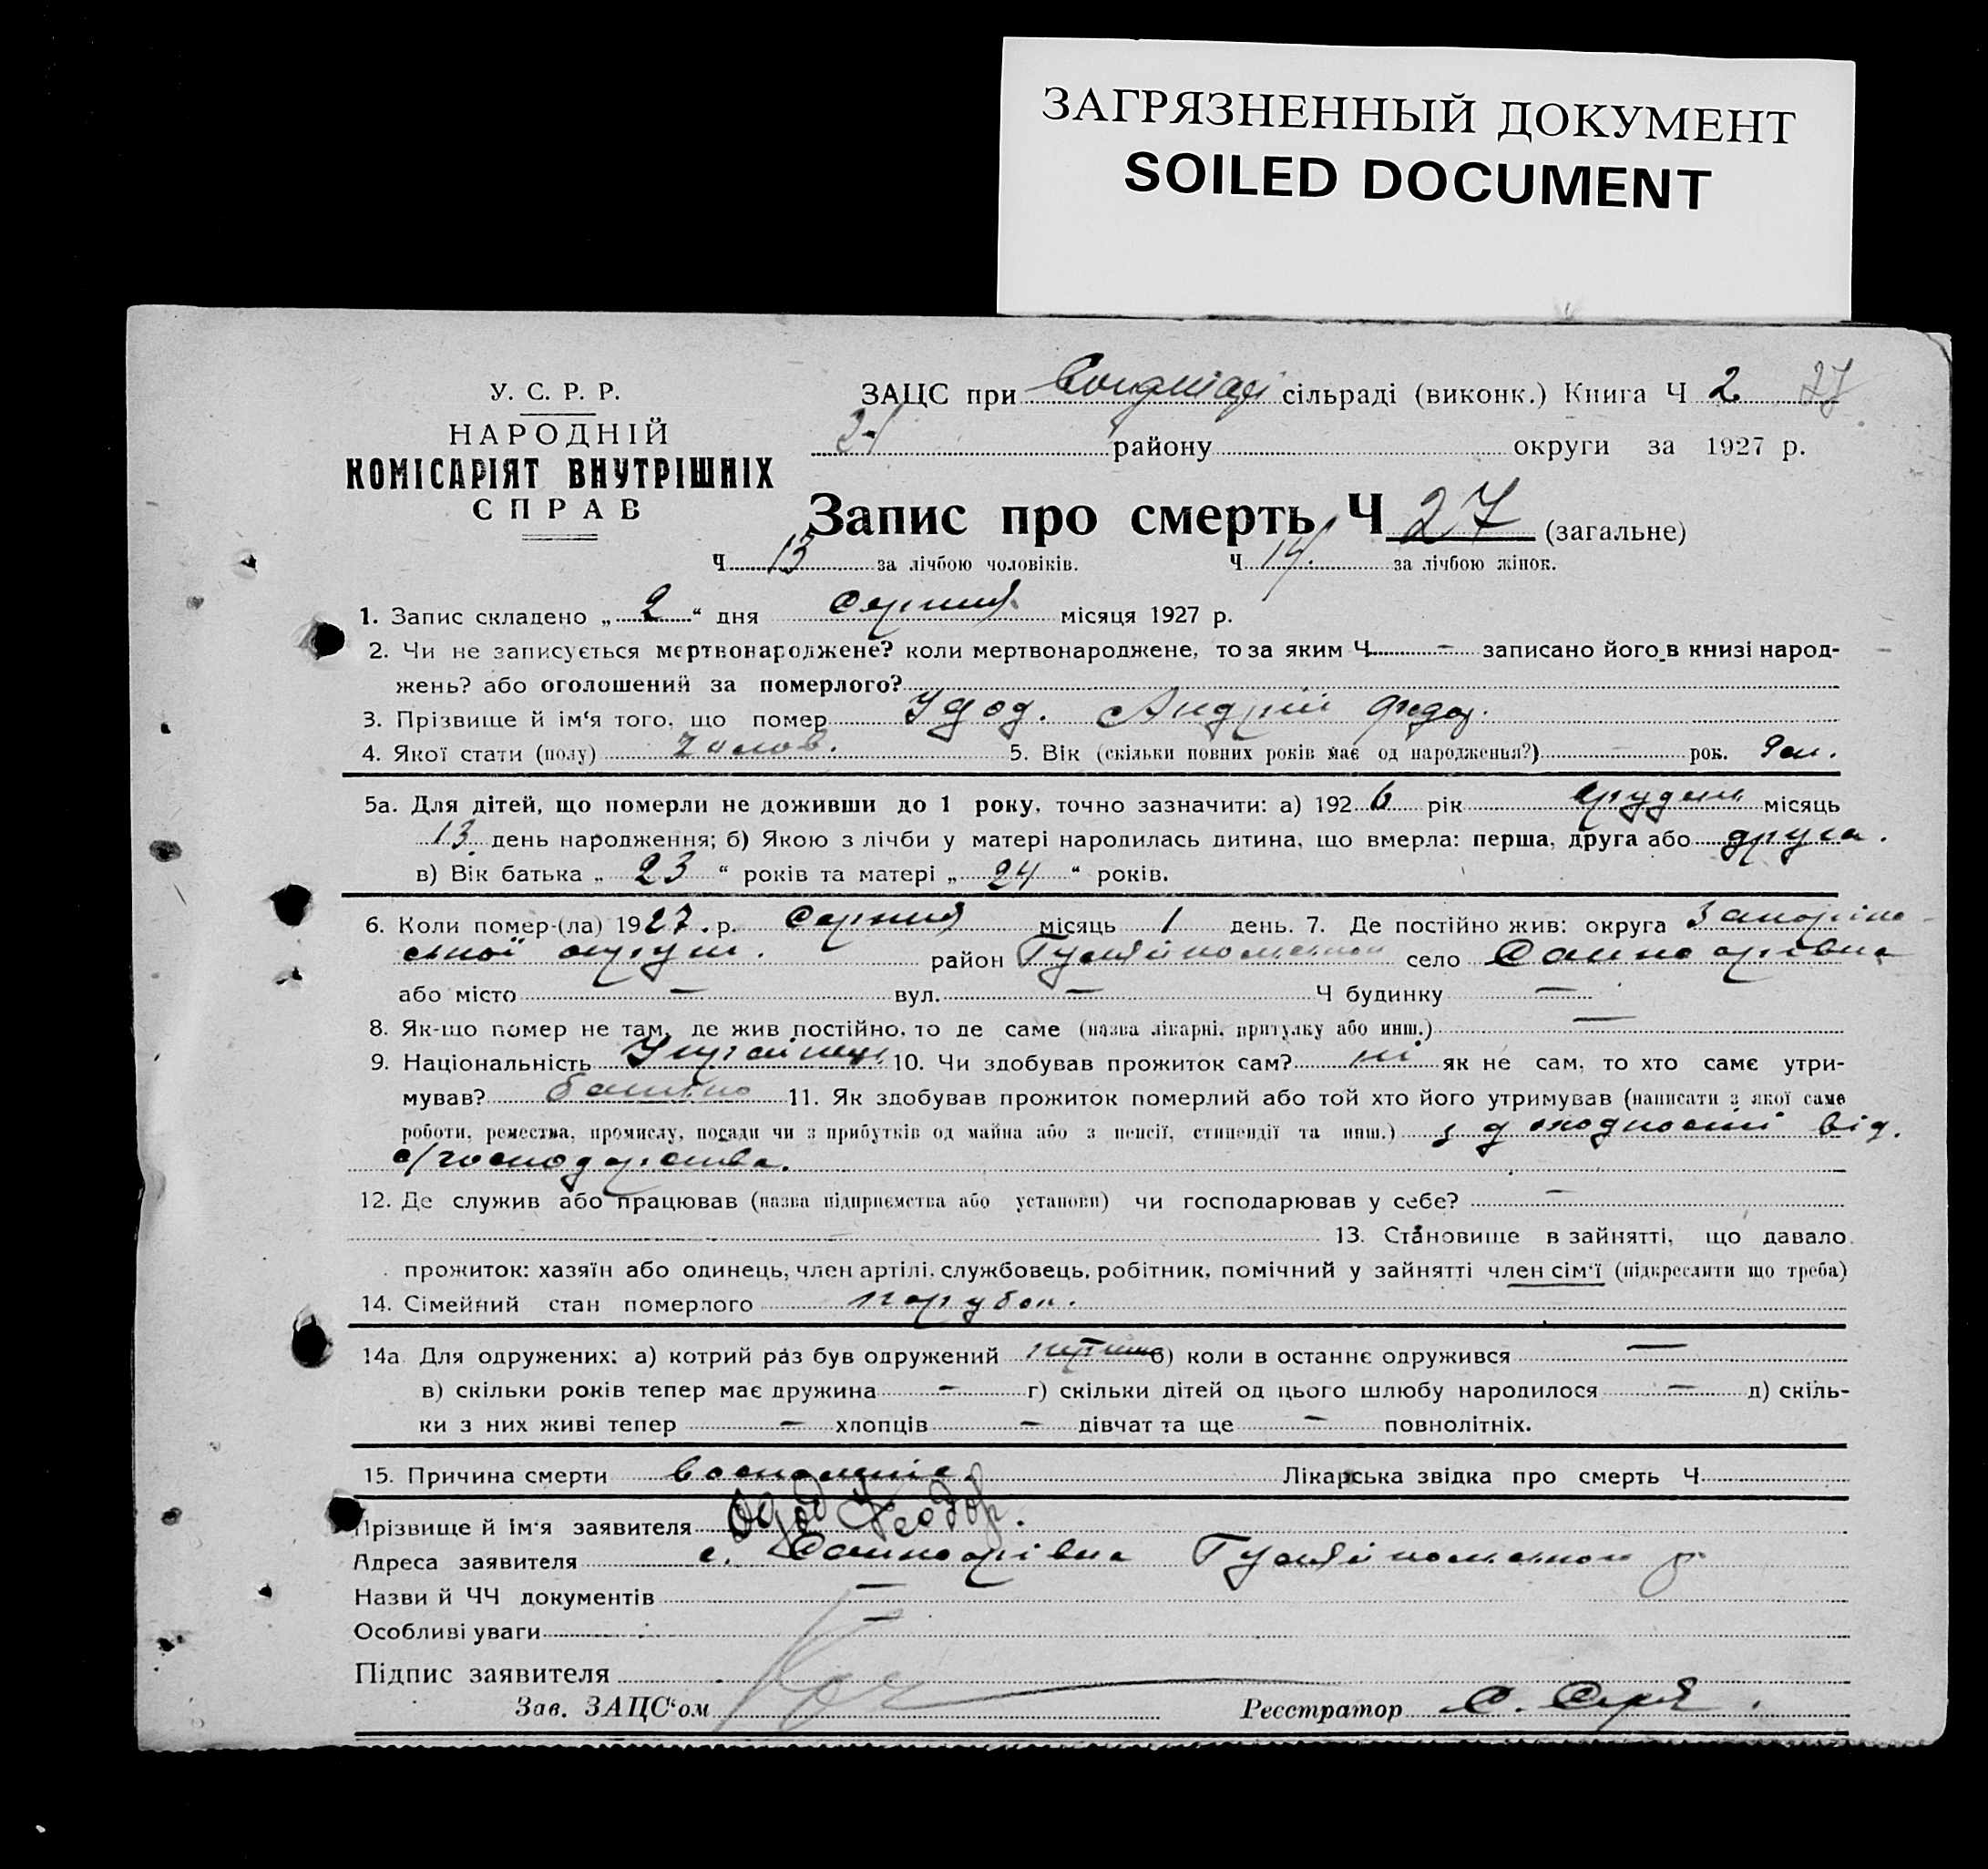 ЗАГРЯЗНЕННЫЙ ДОКУМЕНТ
SOILED DOCUMENT
У. С. Р. Р.
НАРОДНІЙ
КОМІСАРІЯТ ВНУТРІШНІХ
СПРАВ
ЗАЦС при сільраді (виконк.) Книга Ч 2 27
району округи за 1927 р.
Запис про смерть, Ч 27 (загальне)
Ч 13 за лічбою чоловіків. Ч 14. за лічбою жінок.
1. Запис складено „ 2 “ дня серпня місяця 1927 р.
2. Чи не записується мертвонароджене? коли мертвонароджене, то за яким Ч — записано його в книзі народ-
жень? або оголошений за померлого?
3. Прізвище й ім‘я того, що помер Удод. Андрій Федор.
4. Якої стати (полу) чолов. 5. Вік (скільки повних років має од народження?) — рок. 9 м.
5а. Для дітей, що померли не доживши до 1 року, точно зазначити: а) 192 6 рік грудень місяць
13 день народження; б) Якою з лічби у матері народилась дитина, що вмерла: перша, друга або друга.
в) Вік батька „ 23 “ років та матері „ 24 “ років.
6. Коли помер-(ла) 1927. р. Серпня місяць 1 день. 7. Де постійно жив: округа Запоріж-
ської округи. район Гуляйпольськ село Санжарівка
або місто — вул. — Ч будинку —
8. Як-що помер не там, де жив постійно, то де саме (назва лікарні, притулку або инш.) —
9. Національність Українец. 10. Чи здобував прожиток сам? ні як не сам, то хто саме утри-
мував? батько 11. Як здобував прожиток померлий або той хто його утримував (написати з якої саме
роботи, ремества, промислу, посади чи з прибутків од майна або з пенсії, стипендії та инш.) з доходности від.
с/господарства.
12. Де служив або працював (назва підприємства або установи) чи господарював у себе? —
— 13. Становище в зайнятті, що давало
прожиток: хазяїн або одинець, член артілі, службовець, робітник, помічний у зайнятті член сім‘ї (підкреслити що треба)
14. Сімейний стан померлого парубок.
14а Для одружених: а) котрий раз був одружений б) коли в останнє одружився —
в) скільки років тепер має дружина — г) скільки дітей од цього шлюбу народилося — д) скіль-
ки з них живі тепер — хлопців — дівчат та ще — повнолітніх.
15. Причина смерти Лікарська звідка про смерть Ч
Прізвище й ім‘я заявителя Удод Феодор.
Адреса заявителя с. Санжарівка Гуляйпольськ р
Назви й ЧЧ документів —
Особливі уваги —
Підпис заявителя
Зав. ЗАЦС‘ом Реєстратор